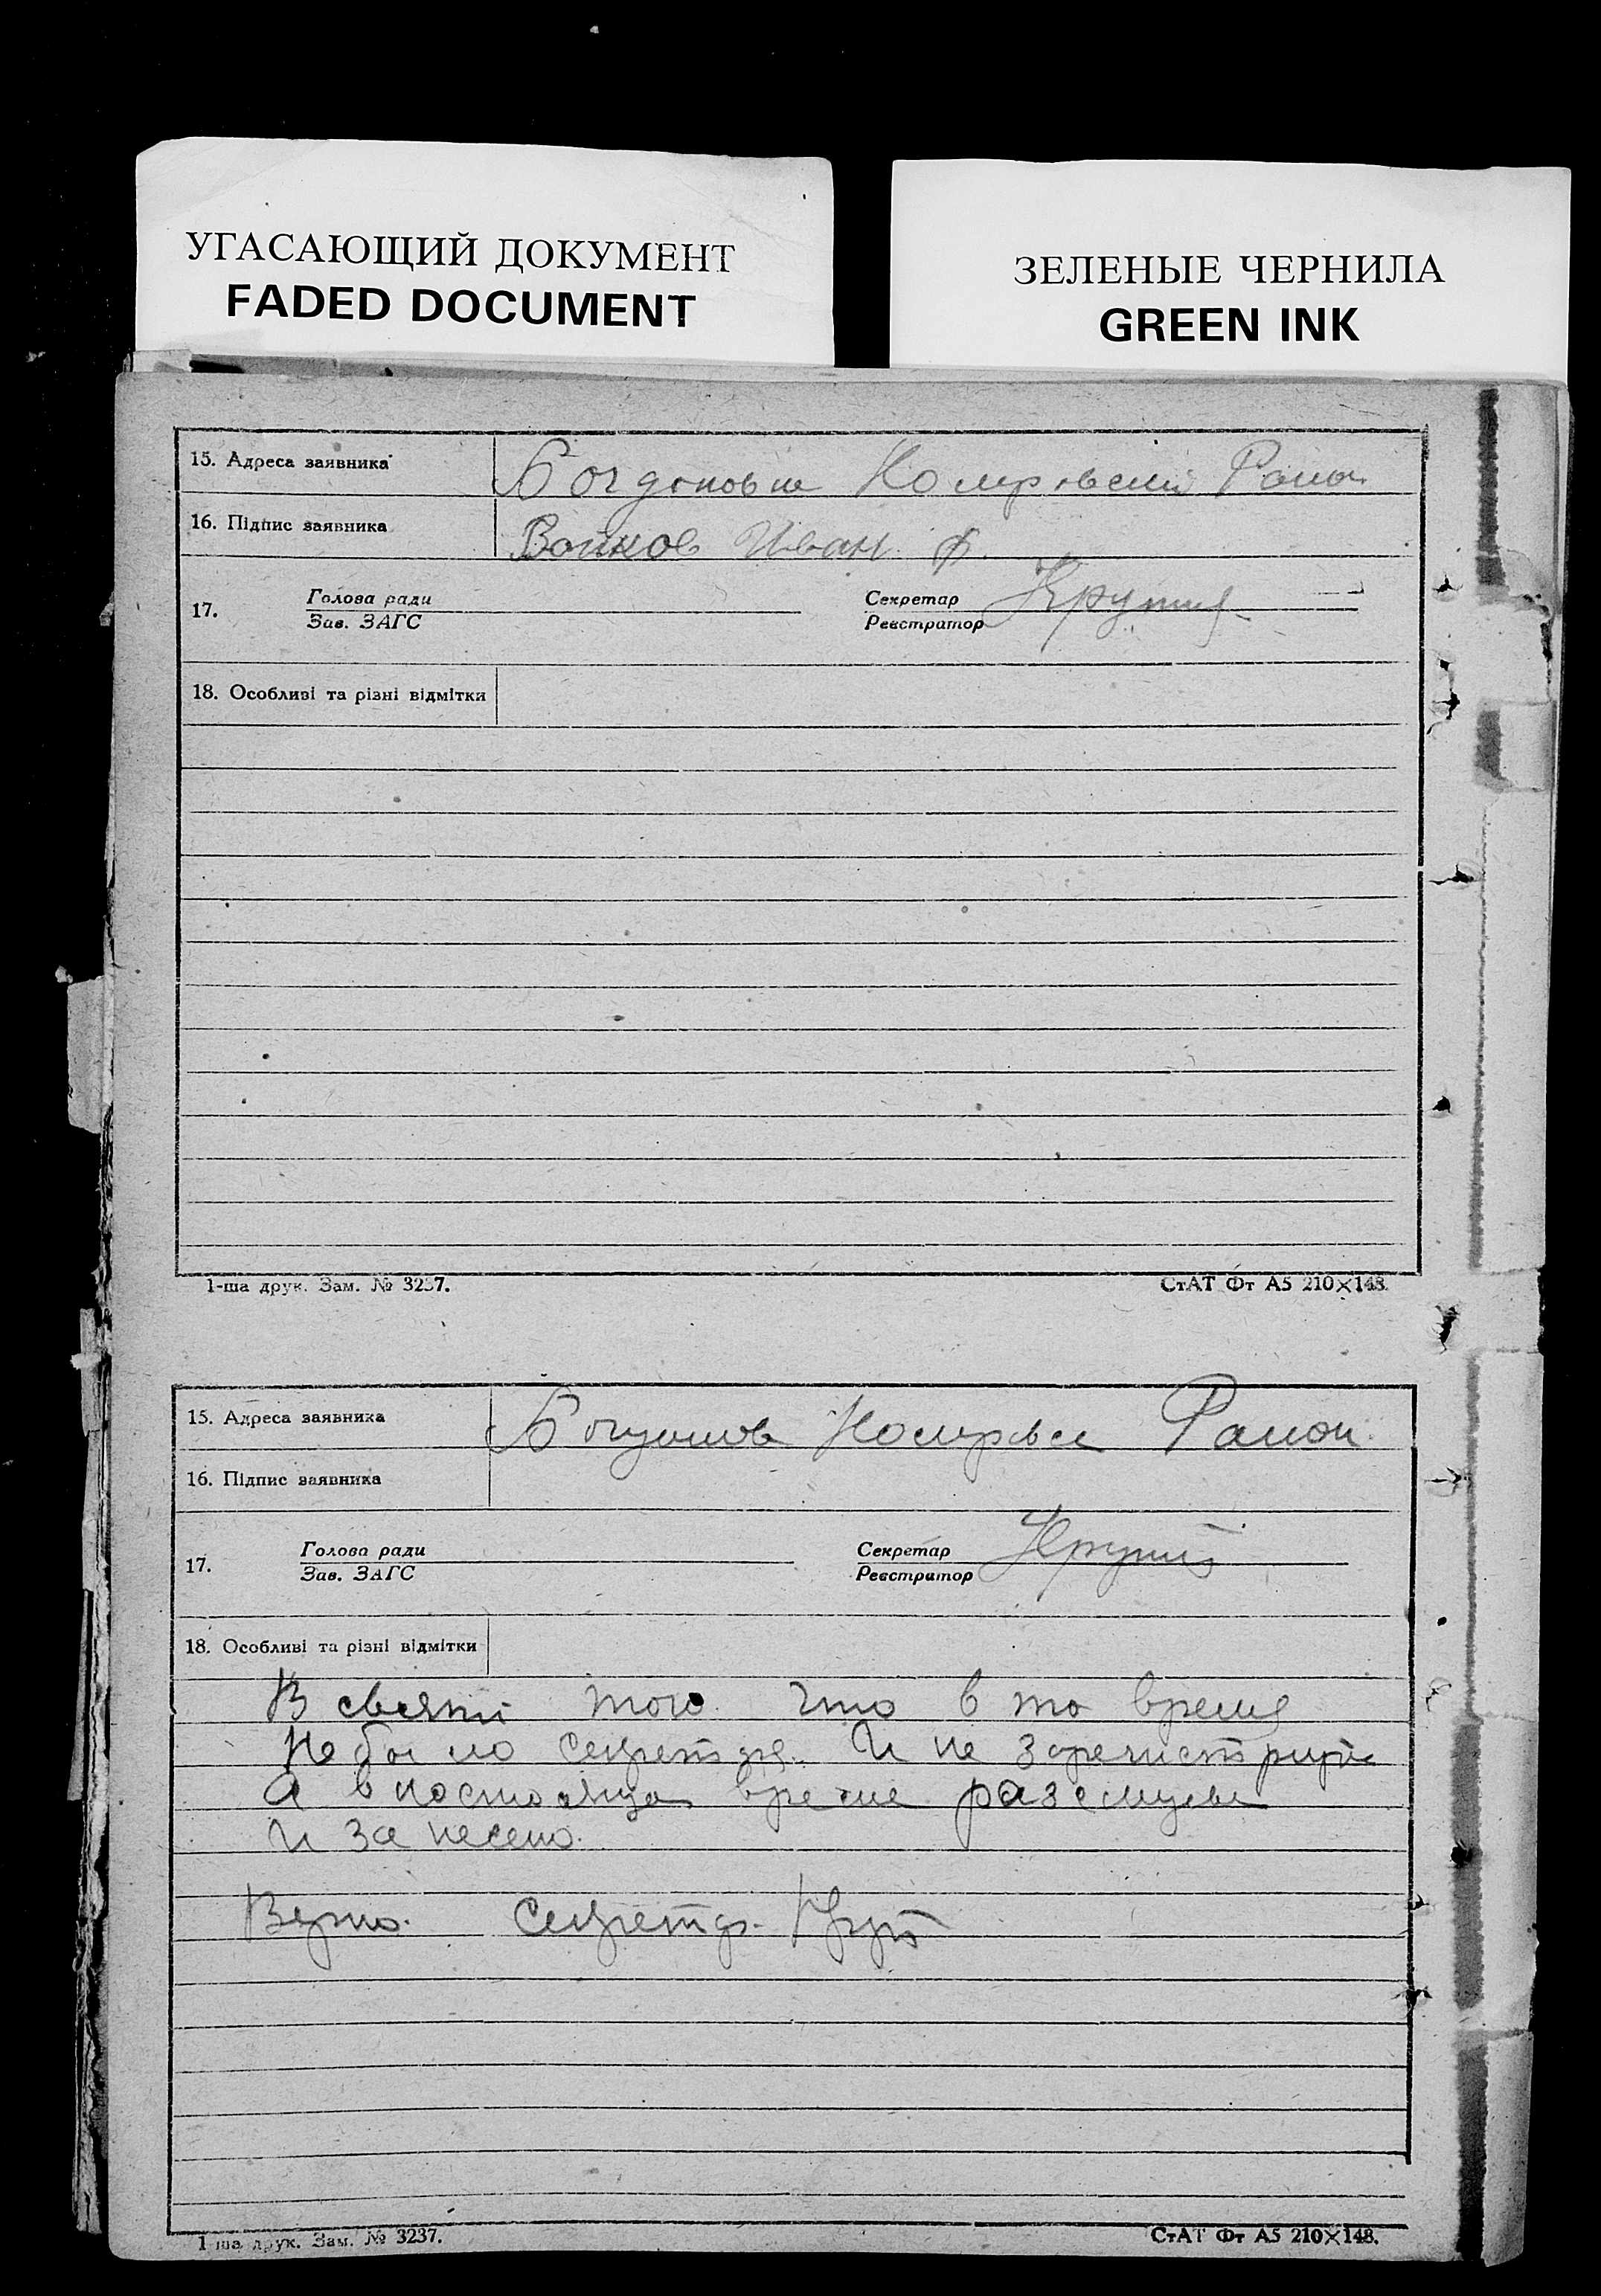 УГАСАЮЩИЙ ДОКУМЕНТ
FADED DOCUMENT
ЗЕЛЕНЫЕ ЧЕРНИЛА
GREEN INK
15. Адреса заявника
16. Підпис заявника Войков Иван Ф.
17. Голова ради Секретар
Зав. ЗАГС Реєстратор
18. Особливі та різні відмітки
1-ша друк. Зам. № 3237. СтАТ Фт А5 210×148.
15. Адреса заявника Район
16. Підпис заявника
17. Голова ради Секретар
Зав. ЗАГС Реєстратор
18. Особливі та різні відмітки
В того что в то время
Не было секретаря. И не
А в время
И занесено.
Верно. Секретар.
1-ша друк. Зам. № 3237. СтАТ Фт А5 210×148.